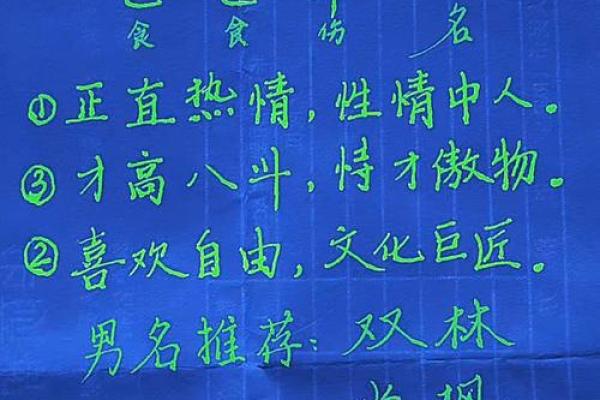 食 食 伤 名
①正直热情，性情中人。
③才高八斗，恃才傲物。
②喜欢自由，文化巨匠。
男名推荐：双林
枫